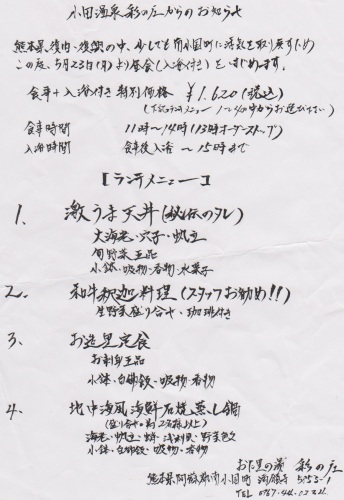 小田温泉 彩の庄からのお知らせ
熊本県復内・復興の中、少しでも南小国町に活気を取り戻すため
この度、5月23日(月)より昼食(入浴付き)をはじめます。
食事+入浴付き 特別価格 ¥1,620(税込)
(下記ランチメニュー1〜4の中からお選び下さい)
食事時間 11時〜14時(13時オーダーストップ)
入浴時間 食事後入浴〜15時まで
[ランチメニュー]
1. 激うま天丼(秘伝のタレ)
大海老・穴子・帆立
旬野菜五品
小鉢・吸物・香物・水菓子
2. 和牛 料理(スタッフお勧め!!)
生野菜盛り合せ・珈琲付き
3. お造里定食
お刺身五品
小鉢・白御飯・吸物・香物
4. 地中海風海鮮石焼蒸し鍋
2名様以上)
海老・帆立・蛤・浅利貝・野菜色々
小鉢・白御飯・吸物・香物
おだ里の湯 彩の庄
熊本県阿蘇郡南小国町満願寺5953-1
TEL 0967-